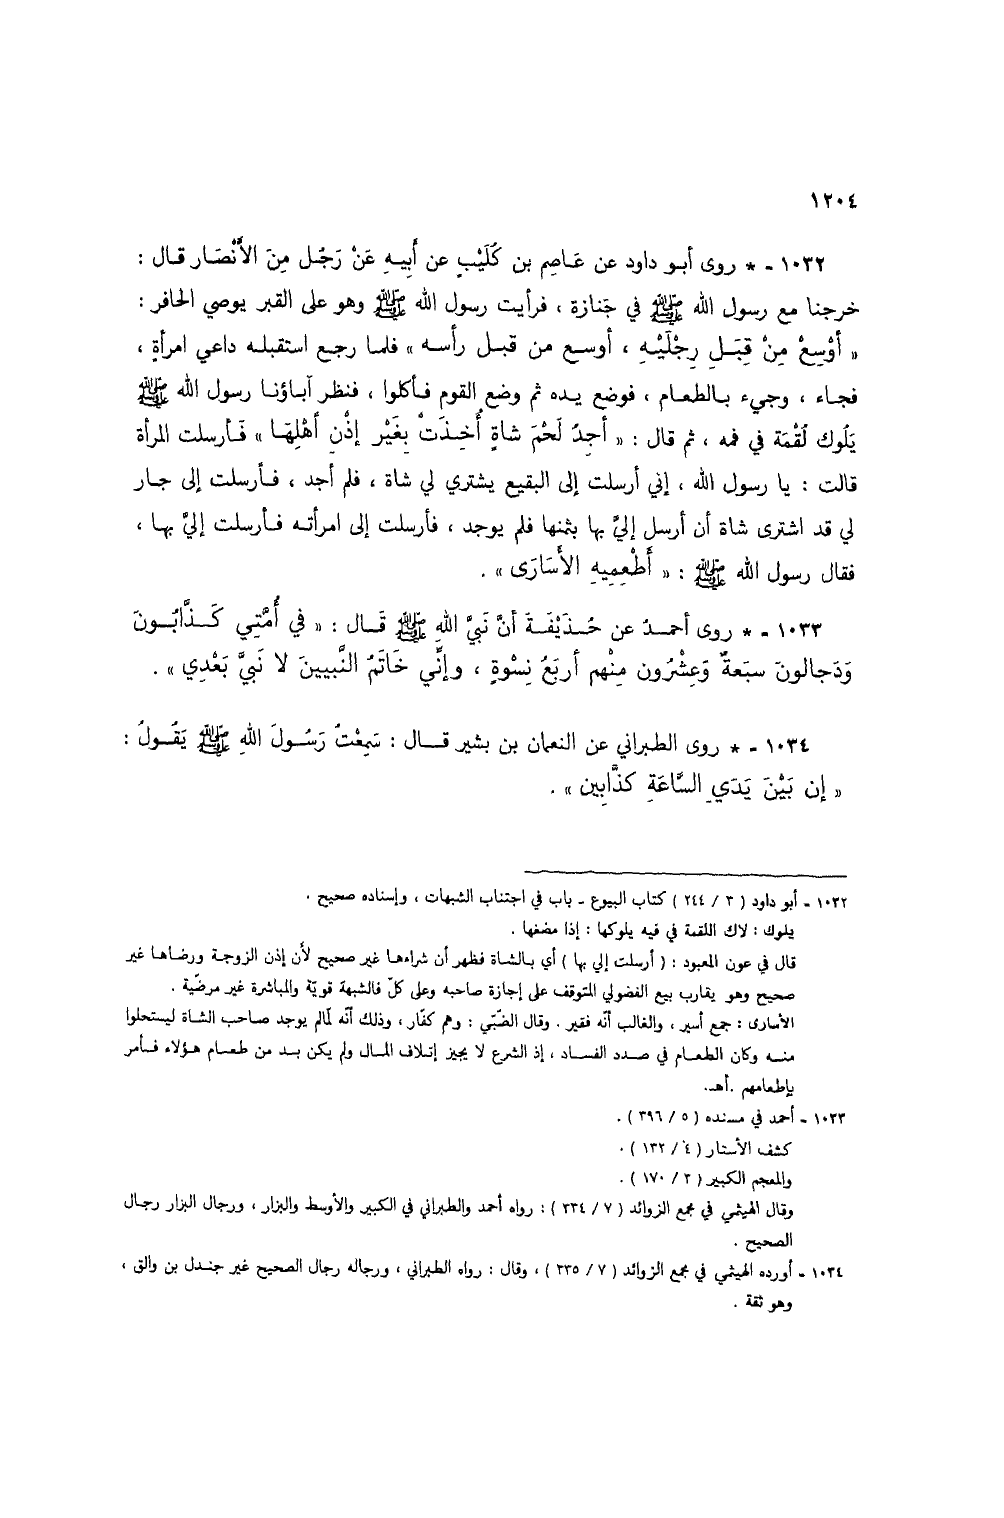 ١٢٠٤
١٠٣٢ - * روى أبو داود عن عاصم بن كُلَيْبٍ عن أَبِيهِ عَنْ رَجُل مِنَ الأَنْصَار قال :
خرجنا مع رسول الله ﷺ في جَنازة ، فرأيت رسول الله ﷺ وهو على القبر يوصي الحافر :
« أَوْسِعْ مِنْ قِبَلِ رِجْلَيْهِ ، أوسع من قبل رأسه » فلما رجع استقبله داعي امرأةٍ ،
فجاء ، وجيء بالطعام ، فوضع يده ثم وضع القوم فأكلوا ، فنظر آباؤنا رسول الله ﷺ
يَلُوك لُقْمَة في فمه ، ثم قال : « أجدُ لَحْمَ شاةٍ أُخِذَتْ بِغَيْرِ إذْنِ أهْلِهَا » فَأرسلت المرأة
قالت : يا رسول الله ، إني أرسلت إلى البقيع يشتري لي شاة ، فلم أجد ، فأرسلت إلى جار
لي قد اشترى شاة أن أرسل إليَّ بها بثمنها فلم يوجد ، فأرسلت إلى امرأته فأرسلت إليَّ بها ،
فقال رسول الله ﷺ : « أَطْعِمِيهِ الأَسَارَى » .
١٠٣٣ - * روى أحمدُ عن حُذَيْفَةَ أنَّ نَبِيَّ اللهِ ﷺ قَال : « في أُمَّتِي كَذَّابُونَ
وَدَجالونَ سبَعةٌ وَعِشْرُون مِنْهم أربَعُ نِسْوةٍ ، وإنِّي خَاتَمُ النَّبيينَ لا نَبيَّ بَعْدِي » .
١٠٣٤ - * روى الطبراني عن النعمان بن بشير قال : سَمِعْتُ رَسُولَ اللهِ ﷺ يَقُولُ :
« إن بَيْنَ يَدَيِ السَّاعَةِ كذَّابِين » .
١٠٣٢ - أبو داود ( ٣ / ٢٤٤ ) كتاب البيوع - باب في اجتناب الشبهات ، وإسناده صحيح .
يلوك : لاك اللقمة في فيه يلوكها : إذا مضغها .
قال في عون المعبود : ( أرسلت إلي بها ) أي بالشاة فظهر أن شراءها غير صحيح لأن إذن الزوجة ورضاها غير
صحيح وهو يقارب بيع الفضولي المتوقف على إجازة صاحبه وعلى كلّ فالشبهة قويّة والمباشرة غير مرضيّة .
الأسارى : جمع أسير ، والغالب أنّه فقير . وقال الضّبّي : وهم كفّار ، وذلك أنّه لمّالم يوجد صاحب الشاة ليستحلوا
منه وكان الطعام في صدد الفساد ، إذ الشرع لا يجيز إتلاف المال ولم يكن بد من طعام هؤلاء فأمر
بإطعامهم .أهـ.
١٠٣٣ - أحمد في مسنده ( ٥ / ٣٩٦ ) .
كشف الأستار ( ٤ / ١٣٢ ) .
والمعجم الكبير ( ٣ / ١٧٠ ) .
وقال الهيثمي في مجمع الزوائد ( ٧ / ٣٣٤ ) : رواه أحمد والطبراني في الكبير والأوسط والبزار ، ورجال البزار رجال
الصحيح .
١٠٣٤ - أورده الهيثمي في مجمع الزوائد ( ٧ / ٣٣٥ ) ، وقال : رواه الطبراني ، ورجاله رجال الصحيح غير جندل بن والق ،
وهو ثقة .